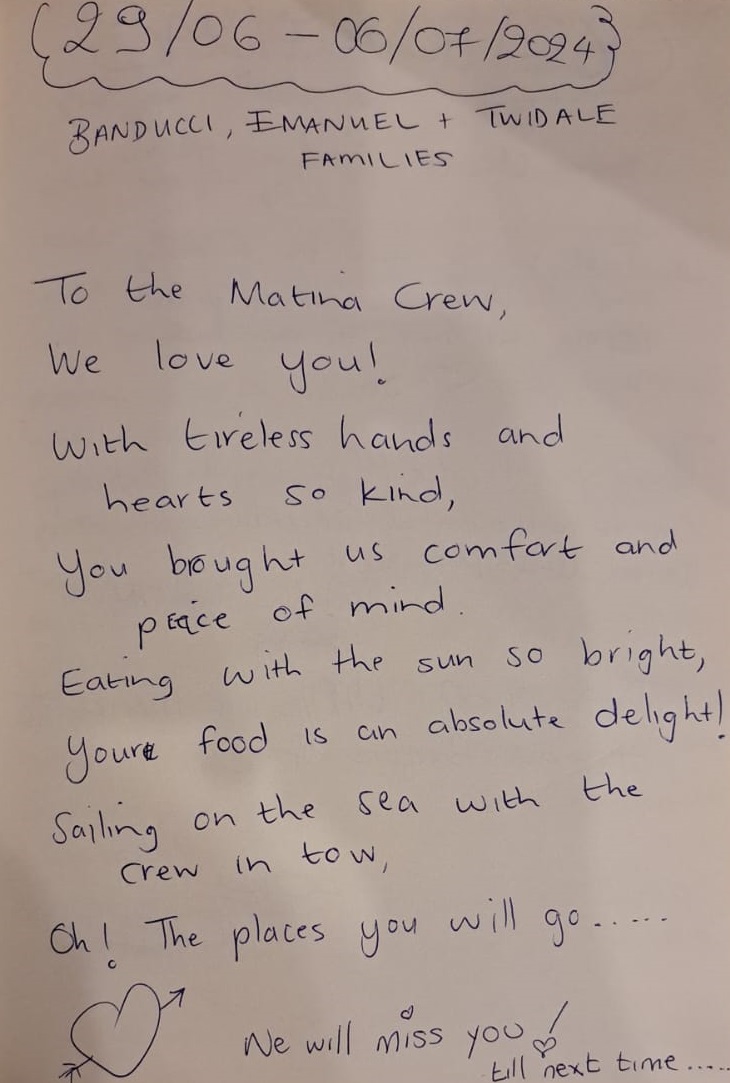 {29/06 - 06/07/2024}
BANDUCCI, EMANUEL + TWIDALE
FAMILIES
To the Matina Crew,
We love you!
With tireless hands and
hearts so kind,
You brought us comfort and
peace of mind.
Eating with the sun so bright,
Youre food is an absolute delight!
Sailing on the sea with the
crew in tow,
Oh! The places you will go.....
We will miss you!
till next time.....